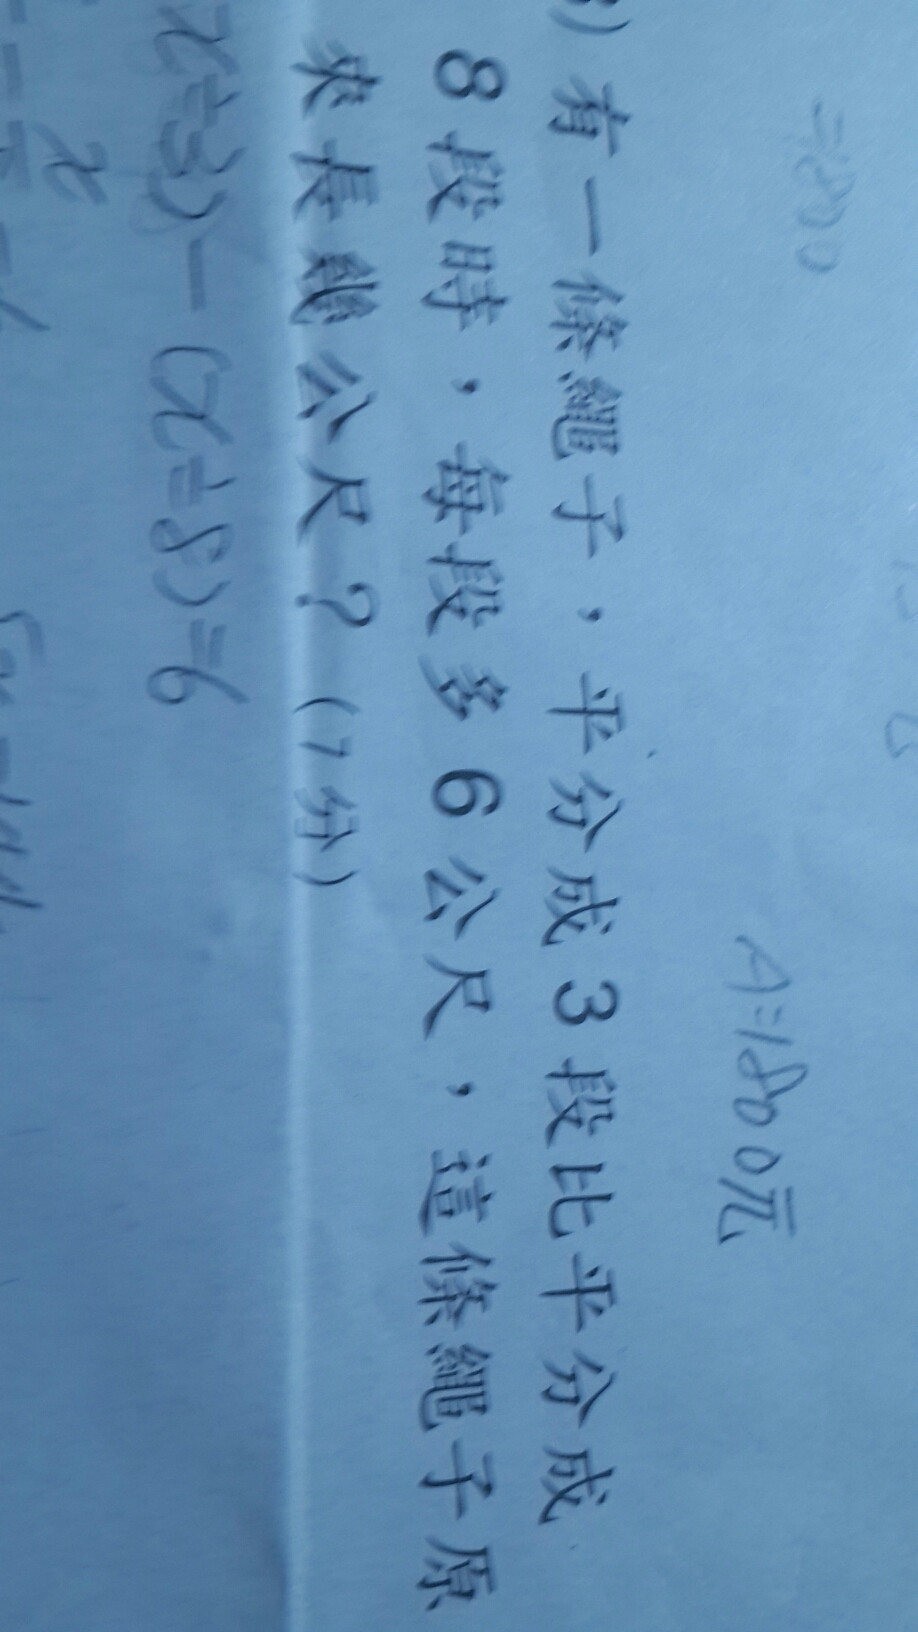 =1800
A=1800元
3) 有一條繩子，平分成3段比平分成
8段時，每段多6公尺，這條繩子原
來長幾公尺？(7分)
(x÷3)-(x÷8)=6